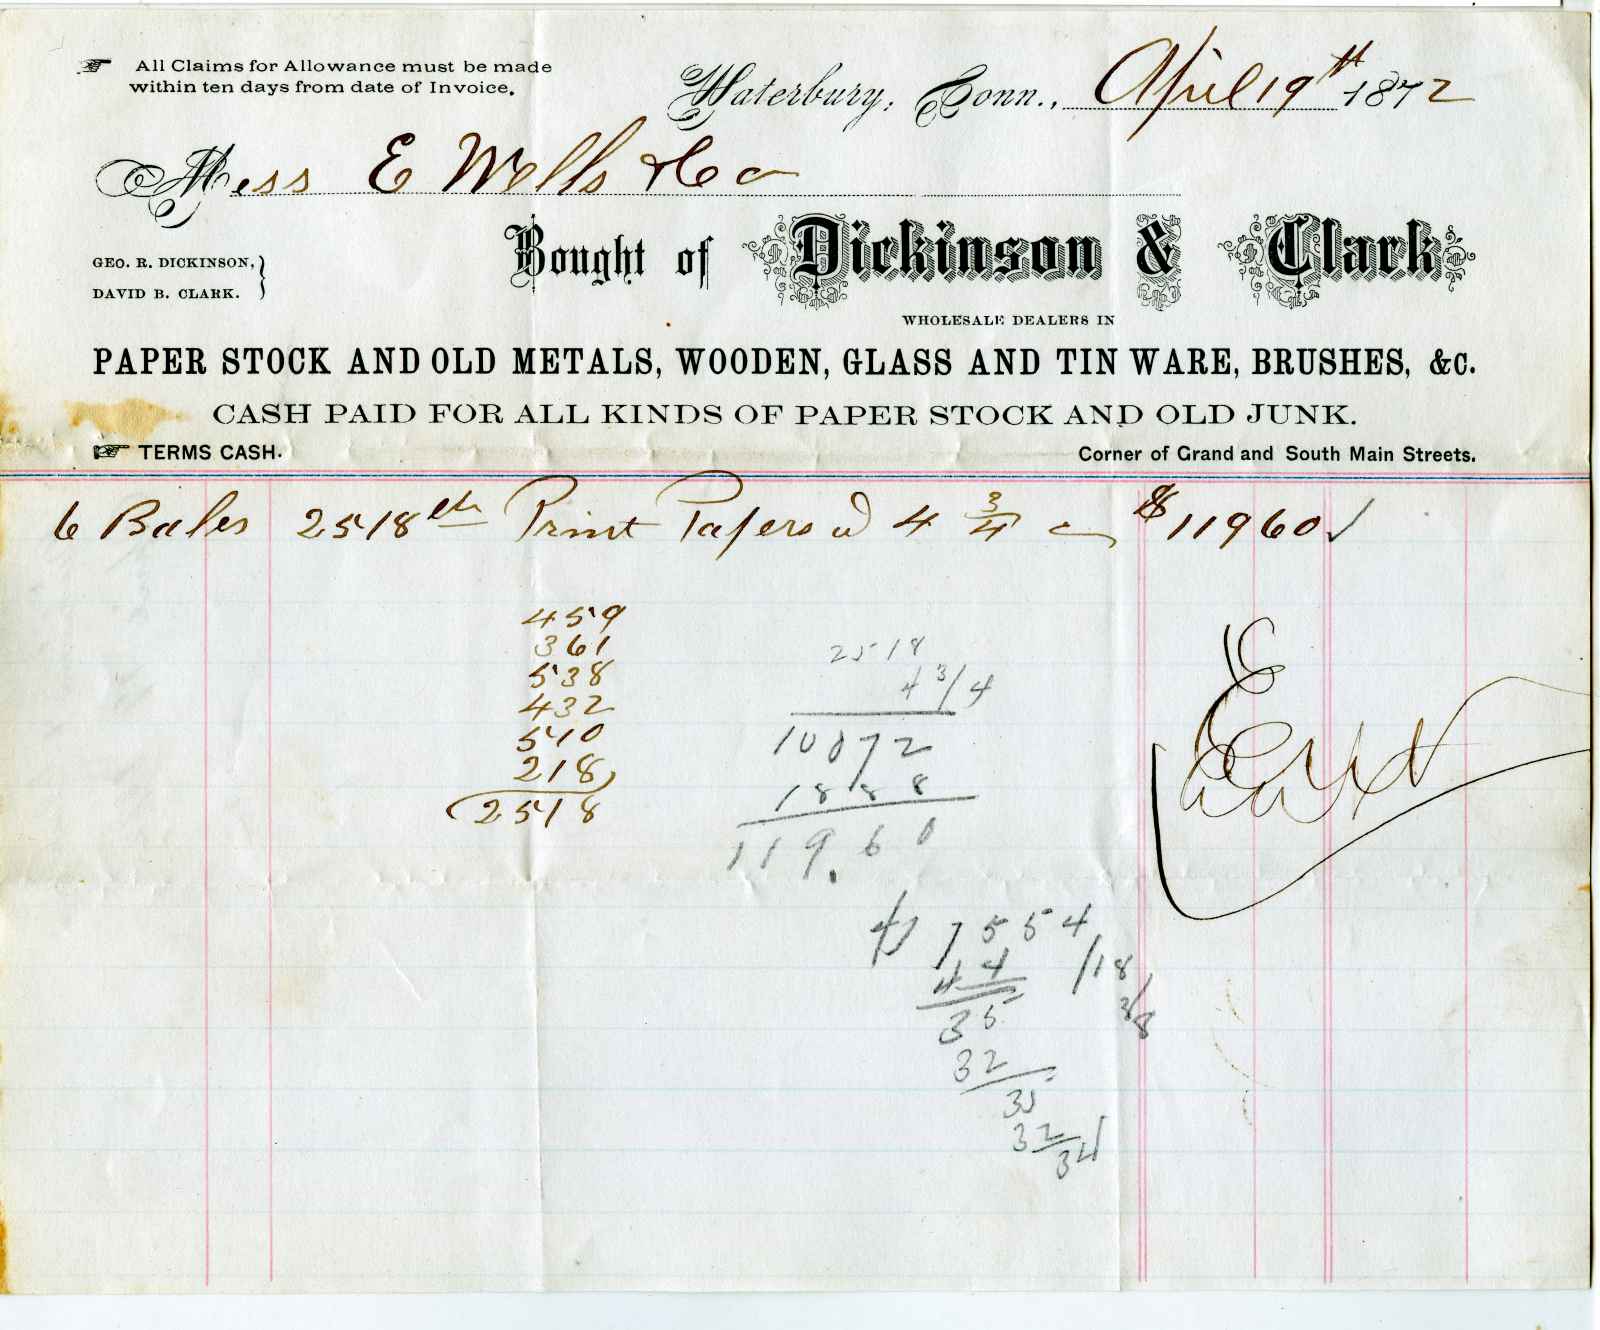 All Claims for Allowance must be made
within ten days from date of Invoice.
Waterbury, Conn., April 19th 1872
Mess E Wells & Co
Bought of Dickinson & Clark
GEO. R. DICKINSON,
DAVID B. CLARK.
WHOLESALE DEALERS IN
PAPER STOCK AND OLD METALS, WOODEN, GLASS AND TIN WARE, BRUSHES, &C.
CASH PAID FOR ALL KINDS OF PAPER STOCK AND OLD JUNK.
TERMS CASH. Corner of Grand and South Main Streets.
6 Bales 2518 lbs Print Papers @ 4 3/4 c $119 60 ✓
459
361
538
432
510
218
2518
2518
4 3/4
10072
1888
119.60
4) 7554
44
/18
3/8
35
32
35
32
34